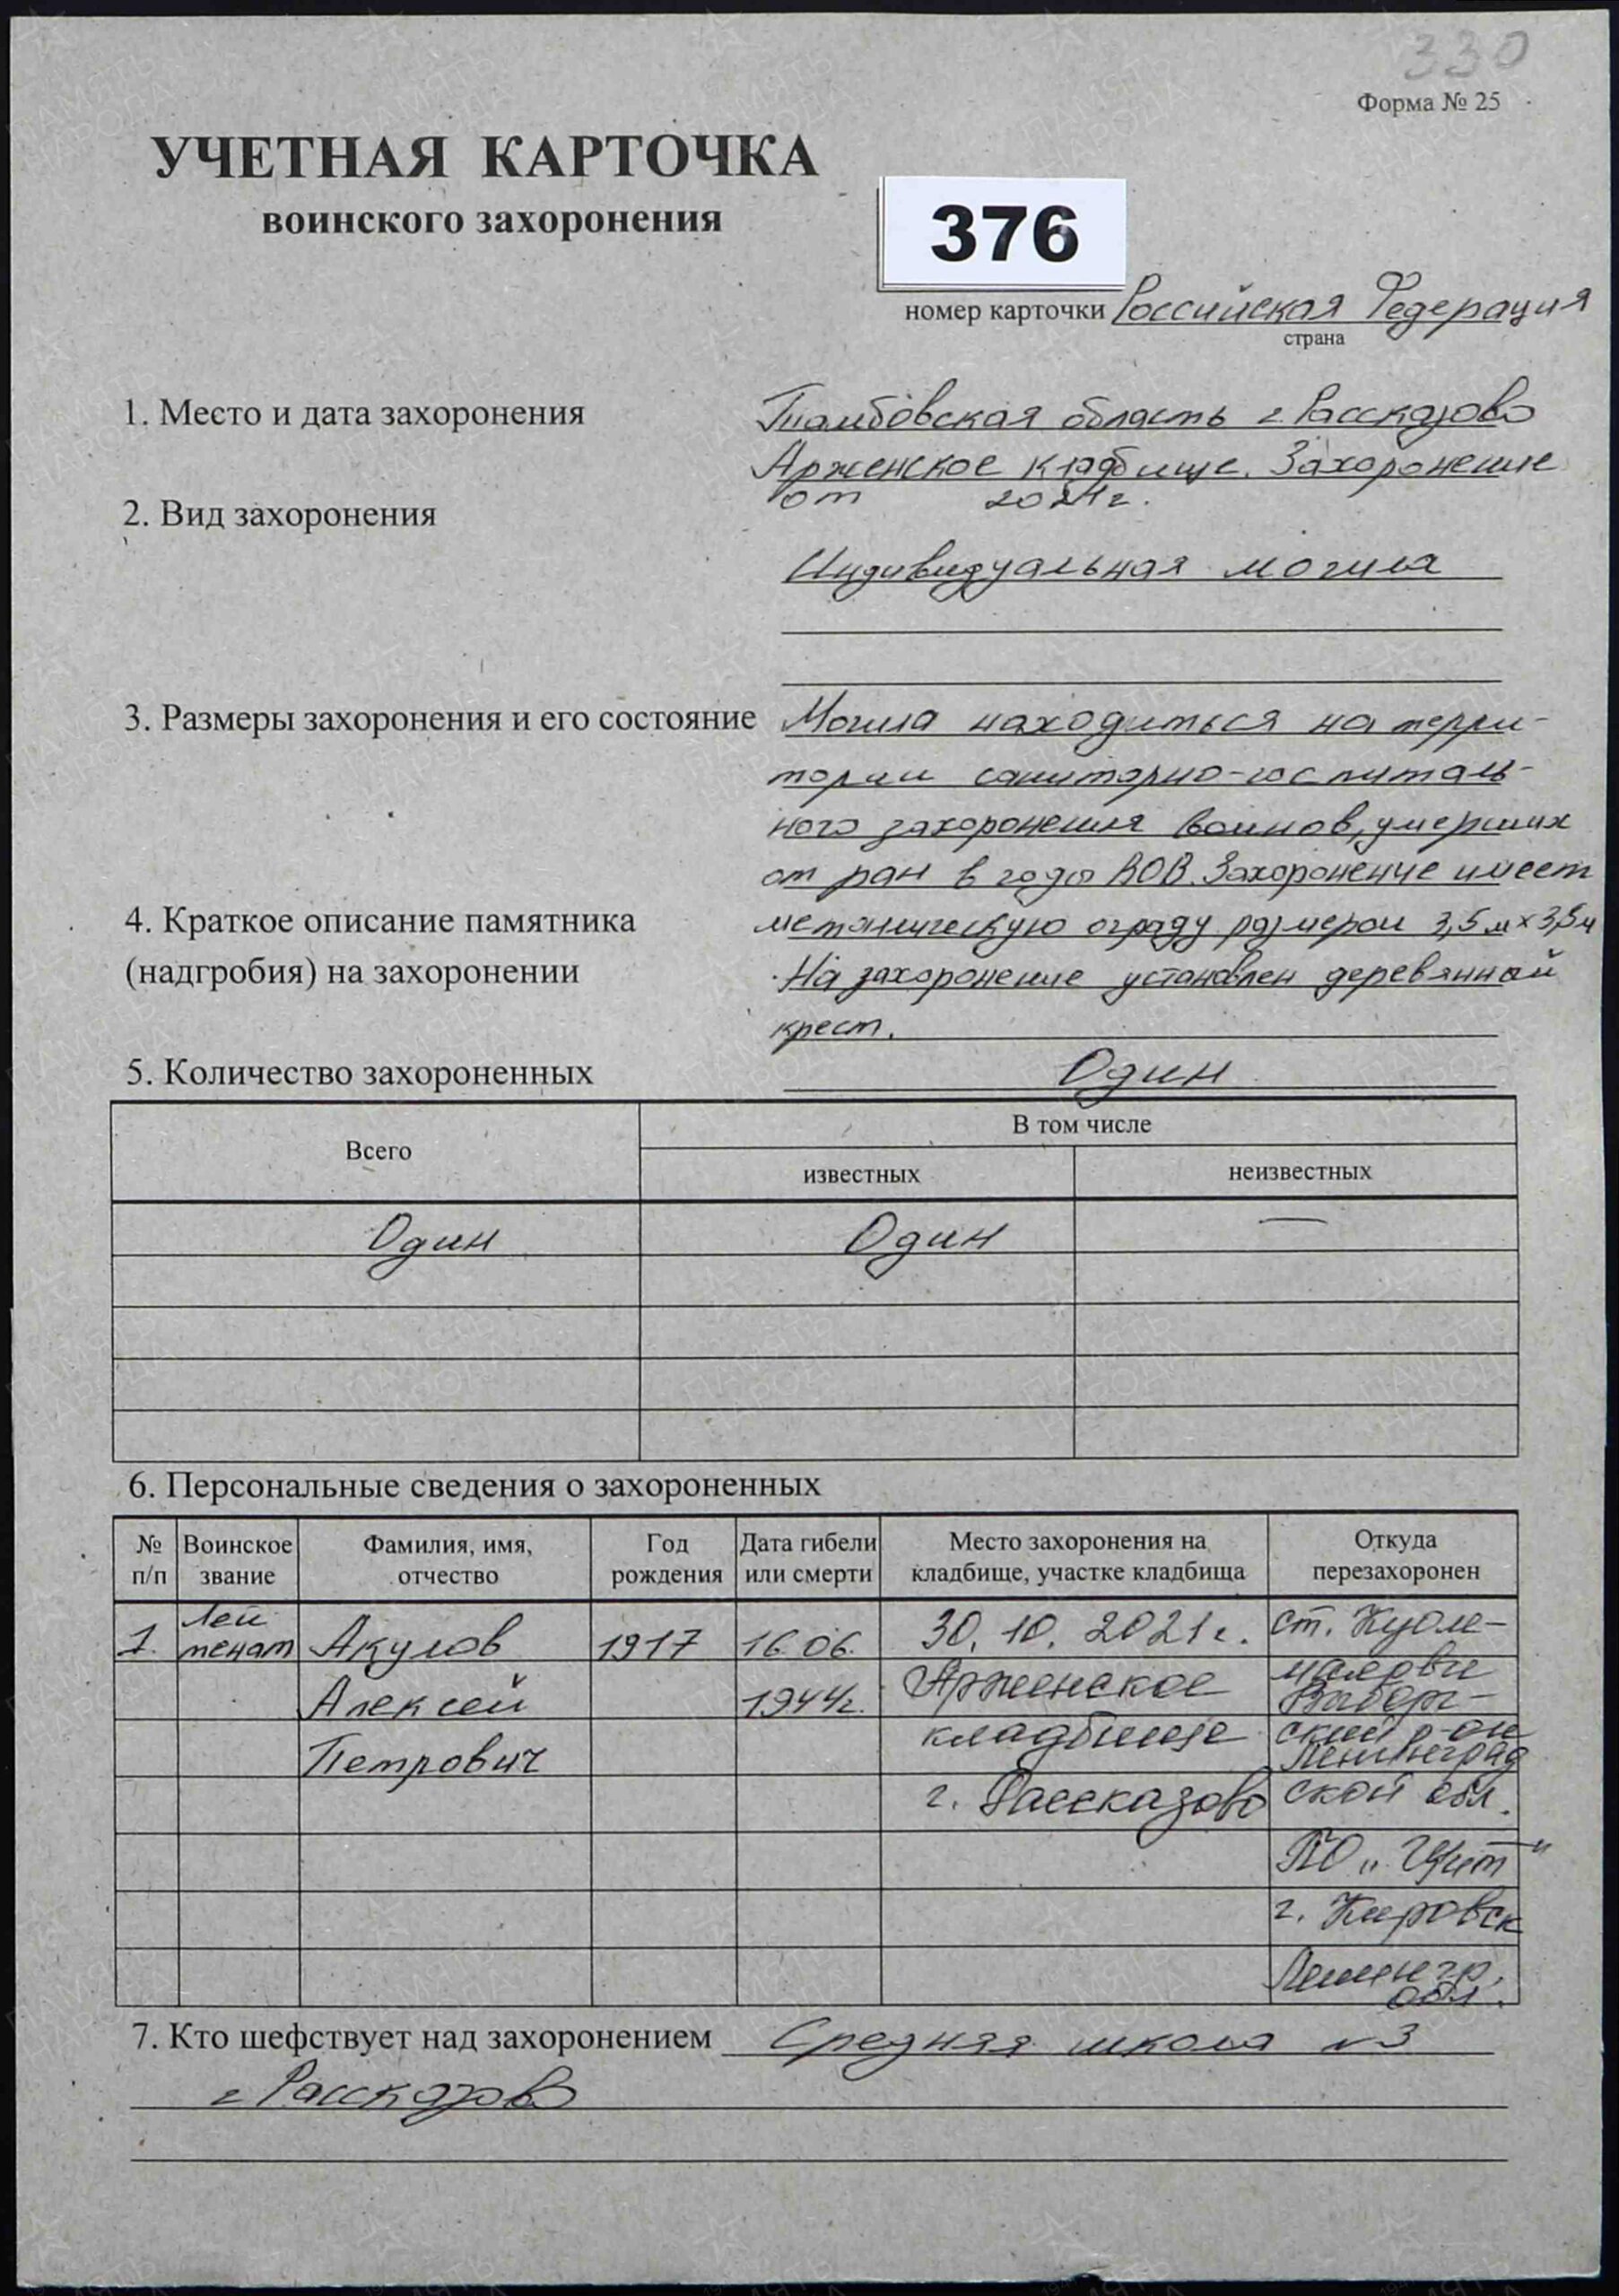 330
Форма № 25
УЧЕТНАЯ КАРТОЧКА
воинского захоронения
376
номер карточки Российская Федерация
страна
1. Место и дата захоронения Тамбовская область г. Рассказово
Арженское кладбище. Захоронение
от 2021 г.
2. Вид захоронения
Индивидуальная могила
3. Размеры захоронения и его состояние Могила находиться на терри-
тории санитарно-госпиталь-
ного захоронения воинов, умерших
от ран в годы ВОВ. Захоронение имеет
4. Краткое описание памятника металическую ограду размером 3,5м х 3,5м
(надгробия) на захоронении На захоронение установлен деревянный
крест.
5. Количество захороненных Один
Всего В том числе
известных неизвестных
Один Один —
6. Персональные сведения о захороненных
№ п/п Воинское звание Фамилия, имя, отчество Год рождения Дата гибели или смерти Место захоронения на кладбище, участке кладбища Откуда перезахоронен
1. Лей тенат Акулов 1917 16.06. 30.10.2021г. ст. Куоле-
Алексей 1944г. Арженское маярви Выборг-
Петрович кладбище ский р-он Ленинград
г. Рассказово ской обл.
ПО "Щит"
г. Кировск
Ленингр. обл.
7. Кто шефствует над захоронением Средняя школа №3
г Рассказово